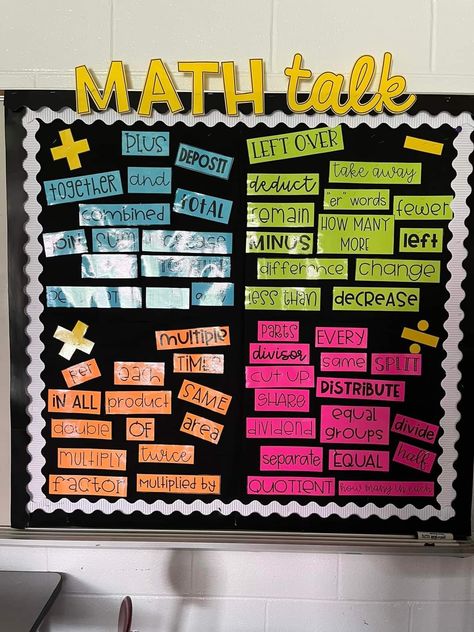 MATH talk
PLUS
DEPOSIT
together and
TOTAL
combined
JOIN SUM increase
LEFT OVER
take away
deduct
"er" words
remain
HOW MANY
MORE
fewer
MINUS
left
difference change
less than decrease
multiple
TIMES
per each
SAME
IN ALL product
double OF area
MULTIPLY twice
factor multiplied by
PARTS EVERY
divisor same SPLIT
CUT UP DISTRIBUTE
SHARE
equal
groups
dividend divide
separate EQUAL half
QUOTIENT how many in each